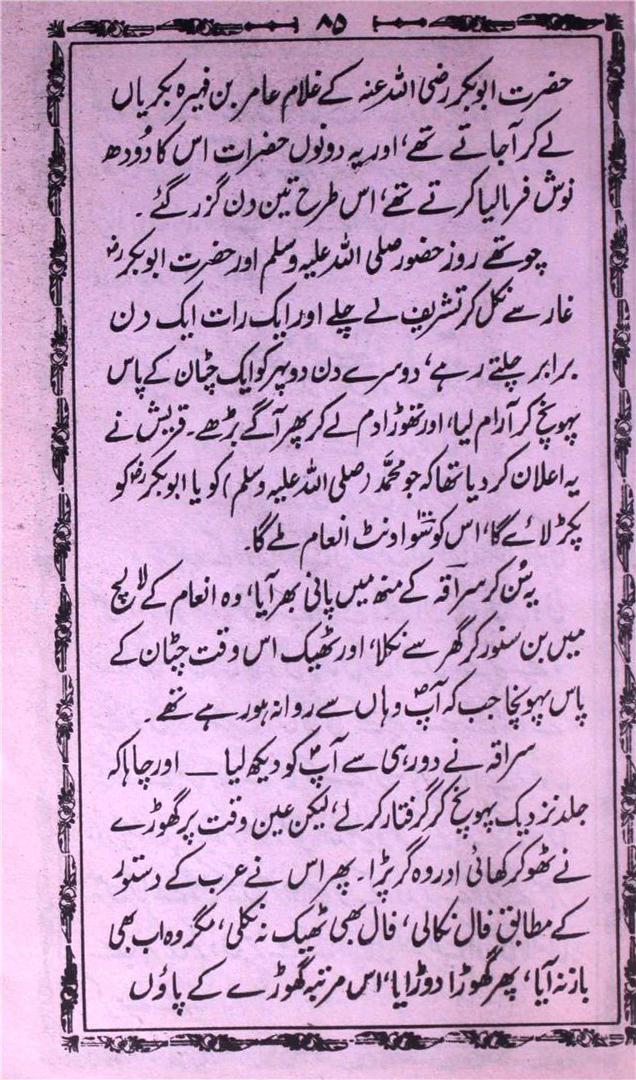 ۸۵
حضرت ابوبکر رضی اللہ عنہ کے غلام عامر بن فہیرہ بکریاں
لے کر آجاتے تھے، اور یہ دونوں حضرات اس کا دُودھ
نوش فرمالیا کرتے تھے، اس طرح تین دن گزر گئے ۔
چوتھے روز حضور صلی اللہ علیہ وسلم اور حضرت ابوبکرؓ
غار سے نکل کر تشریف لے چلے اور ایک رات ایک دن
برابر چلتے رہے، دوسرے دن دوپہر کو ایک چٹان کے پاس
پہونچ کر آرام لیا، اور تھوڑا دم لے کر پھر آگے بڑھے۔ قریش نے
یہ اعلان کر دیا تھا کہ جو محمّد (صلی اللہ علیہ وسلم) کو یا ابوبکرؓ کو
پکڑ لائے گا، اس کو سَو اونٹ انعام ملے گا۔
یہ سُن کر سراقہ کے منھ میں پانی بھر آیا، وہ انعام کے لالچ
میں بن سنور کر گھر سے نکلا، اور ٹھیک اس وقت چٹان کے
پاس پہونچا جب کہ آپؐ وہاں سے روانہ ہو رہے تھے ۔
سراقہ نے دور ہی سے آپؐ کو دیکھ لیا ــ اور چاہا کہ
جلد نزدیک پہونچ کر گرفتار کرلے، لیکن عین وقت پر گھوڑے
نے ٹھوکر کھائی اور وہ گر پڑا۔ پھر اس نے عرب کے دستور
کے مطابق فال نکالی، فال بھی ٹھیک نہ نکلی، مگر وہ اب بھی
باز نہ آیا، پھر گھوڑا دوڑایا، اس مرتبہ گھوڑے کے پاؤں